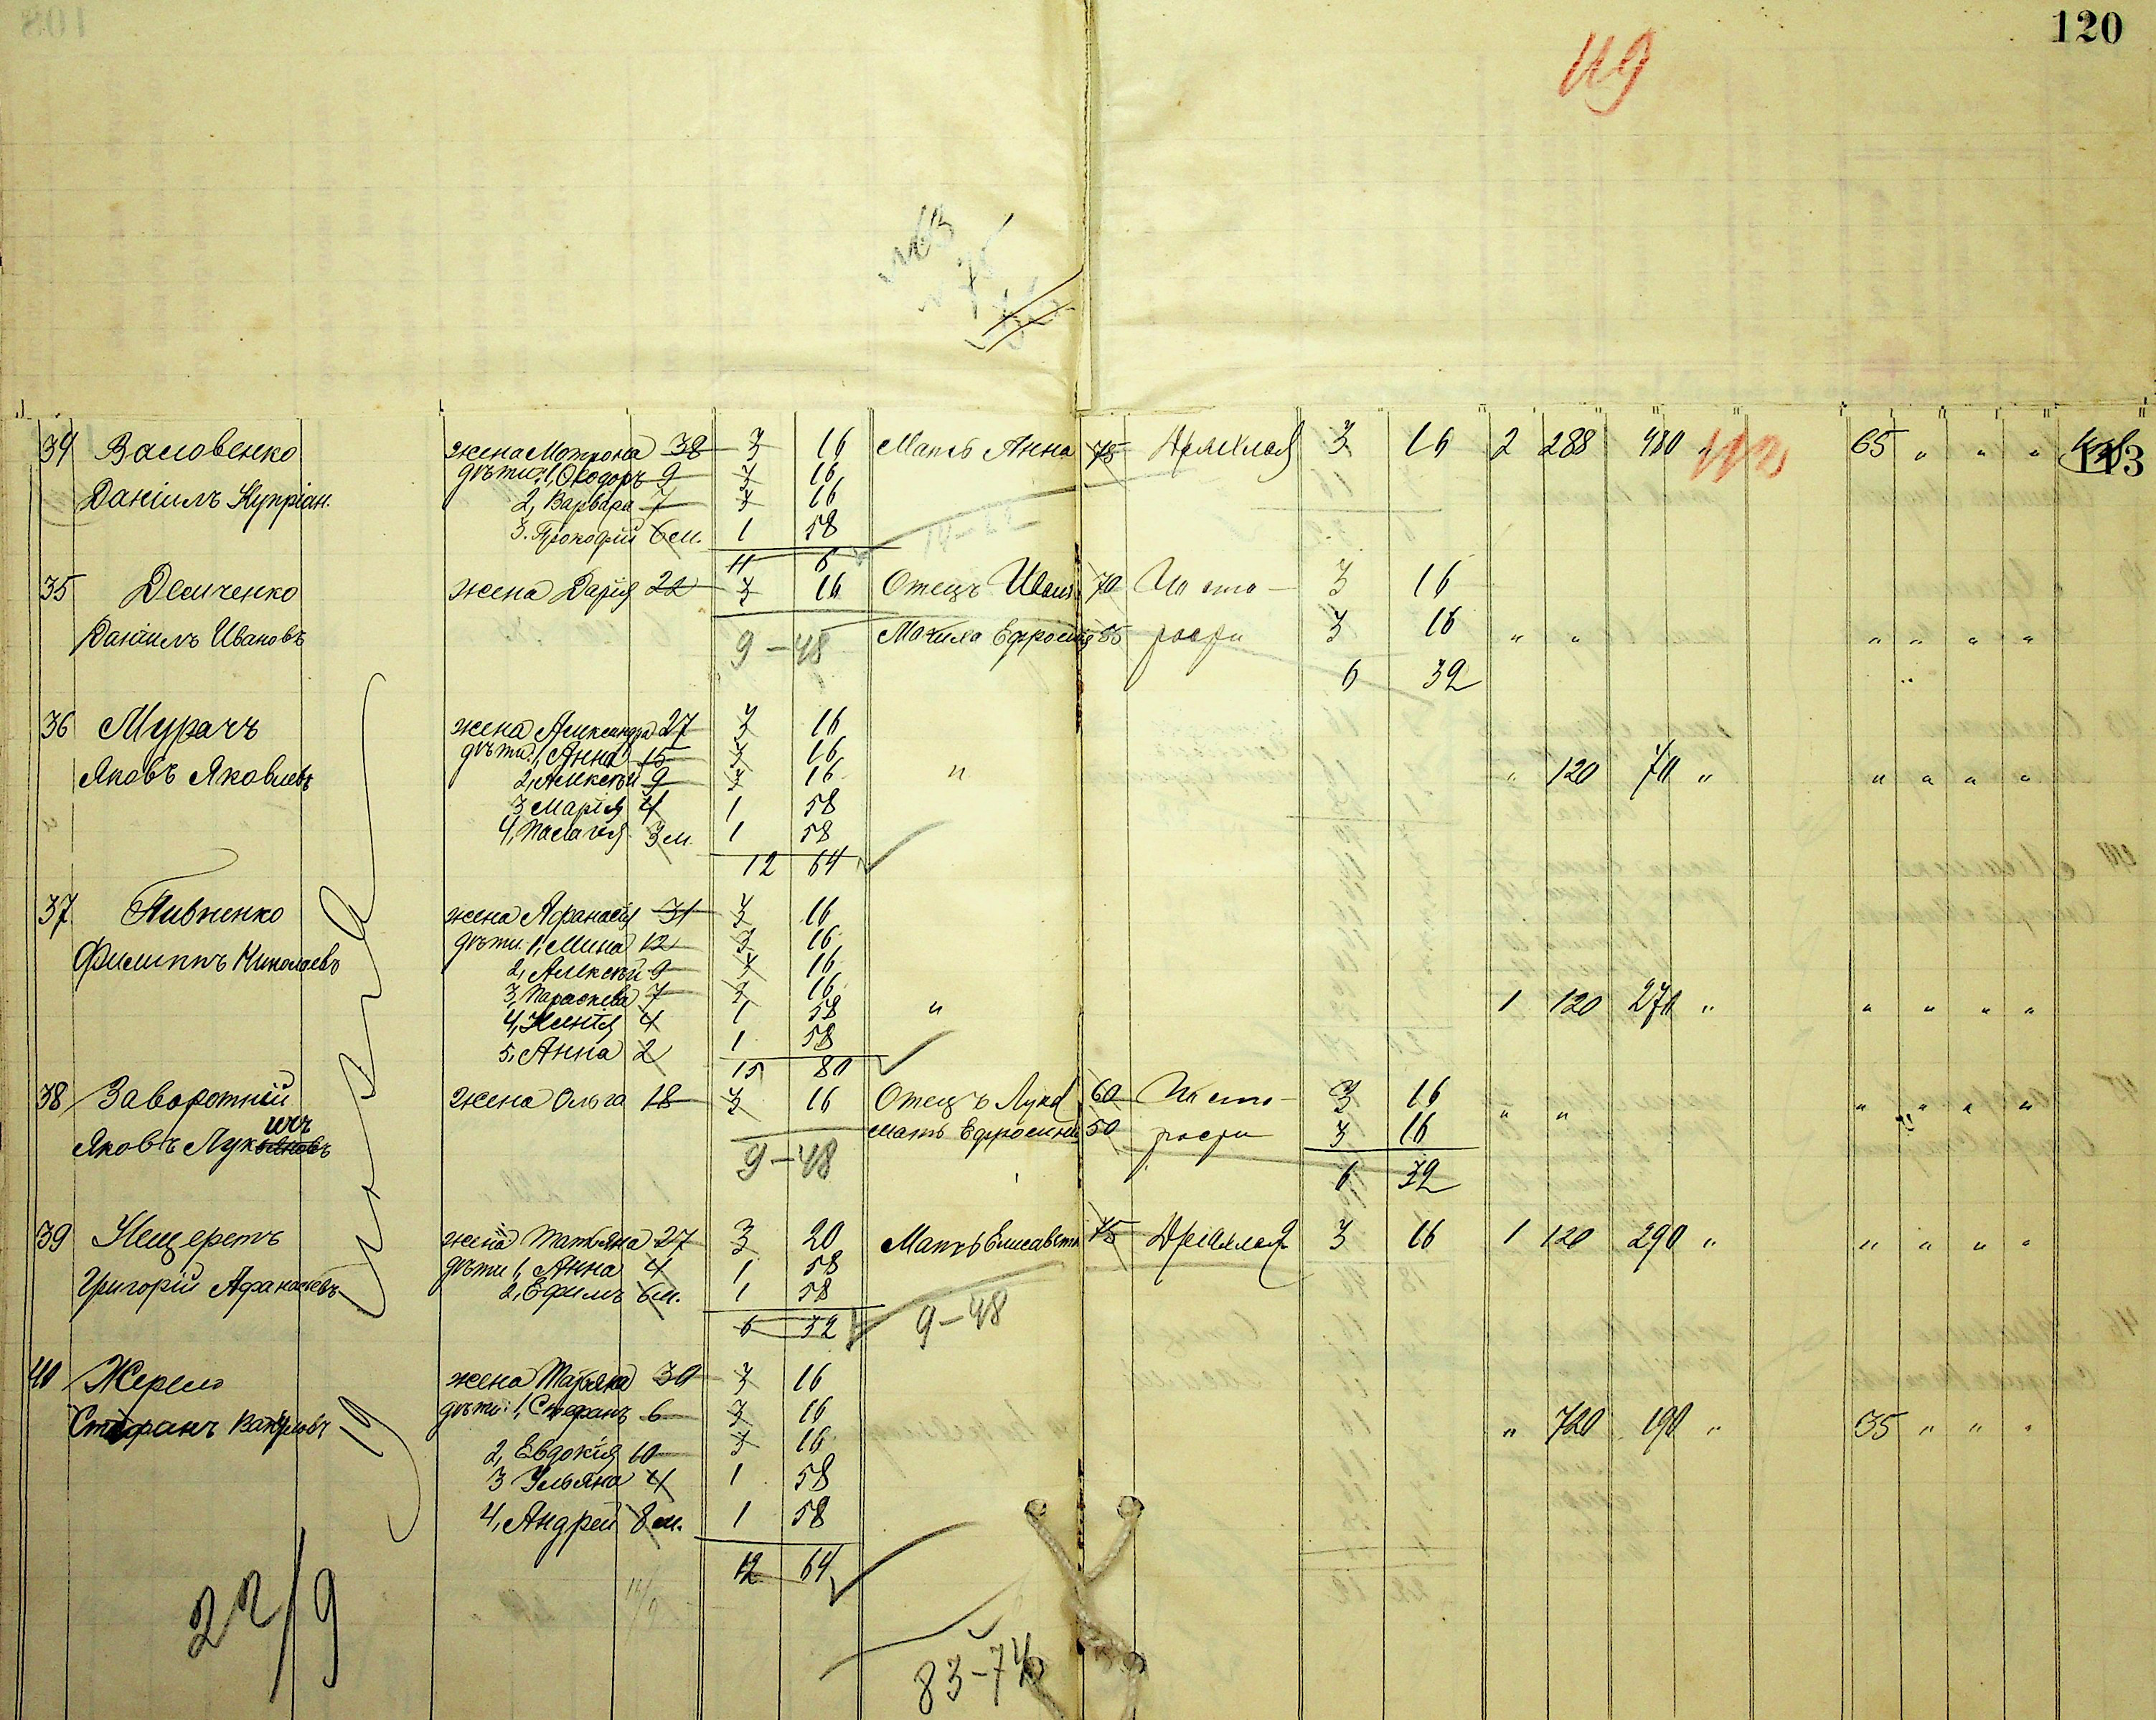 120
119
34 Валовенко жена Мотрона 38 3 16 Мать Анна 75 Дряхлая 3 16 2 288 480 " 65 " " " 113
дѣти: 1, Ѳеодоръ 9 3 16
Даніилъ Купріан. 2, Варвара 7 3 16
3. Прокофій 6 м. 1 58
11 6
35 Демченко жена Дарія 22 3 16 Отецъ Иванъ 70 По ста- 3 16
Даніилъ Ивановъ 9-48 Мачиха Ефросинія 55 рости 3 16 " " " " " "
6 32
36 Мурачъ жена Александра 27 3 16
дѣти: 1, Анна 15 3 16
Яковъ Яковлевъ 2, Алексѣй 9 3 16 " " 120 70 " " " " "
3 Марія 4 1 58
4, Пелагея 3 м. 1 58
12 64
37 Пивненко жена Афанасія 31 3 16
дѣти. 1, Мина 12 3 16
Филиппъ Николаевъ 2, Алексѣй 9 3 16
3, Параскева 7 3 16
4, Ксенія 4 1 58 " 1 120 270 " " " " "
5, Анна 2 1 58
15 80
38 Заворотній жена Ольга 18 3 16 Отецъ Лука 60 По ста- 3 16 " " " " " "
Яковъ Лукичъ 9-48 Мать Ефросинія 50 рости 3 16
6 32
39 Нещеретъ жена Татьяна 27 3 20 Мать Елисавета 75 Дряхлая 3 16 1 120 290 " " " " "
дѣти 1, Анна 4 1 58
Григорій Афанасьевъ 2, Ефимъ 6 м. 1 58
6 32 9-48
40 Жерело жена Татьяна 30 3 16
дѣти: 1, Стефанъ 6 3 16
Стефанъ 2, Евдокія 10 3 16 " 720 190 " 35 " " "
3 Ульяна 4 1 58
4, Андрей 8 м. 1 58
12 64
22/9
83-74